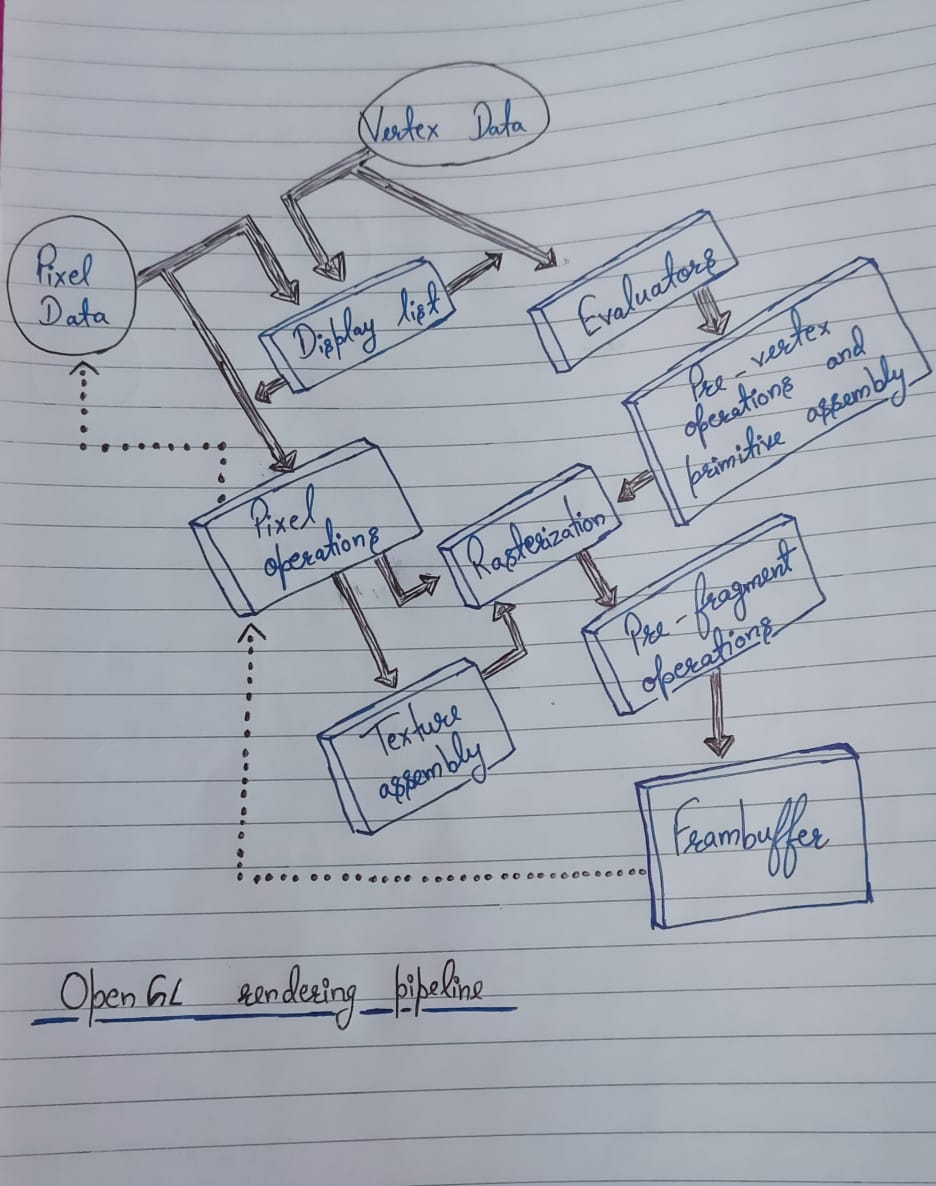 Vertex Data
Pixel
Data
Display list
Evaluators
Pre-vertex
operations and
primitive assembly
Pixel
operations
Rasterization
Pre-fragment
operations
Texture
assembly
Frambuffer
OpenGL rendering pipeline